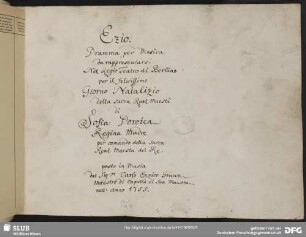 Ezio.
Dramma per Musica
da rappresentarsi
Nel Regio Teatro di Berlino
per il felicissimo
Giorno Natalizio
della Sacra Real Maestà
di
Sofia Dorotea
Regina Madre
per comando della Sacra
Real Maestà del Re
posto in Musica
dal Sigre Carlo Enrico Graun
Maestro di Capella di Sua Maestà
anno 1755.
SLUB
DFG